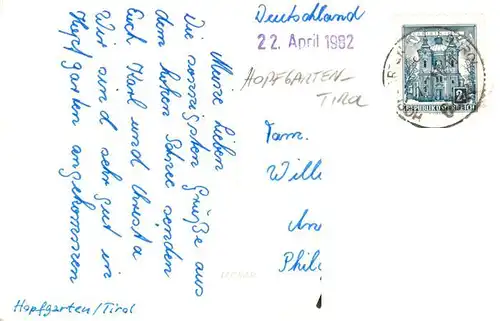 Deutschland
22. April 1962
HOPFGARTEN-
TIROL
2S
REPUBLIK ÖSTERREICH
Meine Lieben
Die sonnigsten Grüße aus
dem hohen Schnee senden
Euch Karl und Christa
Wir sind sehr gut in
Hopfgarten angekommen
Fam.
Will
An
Phil
Hopfgarten/Tirol